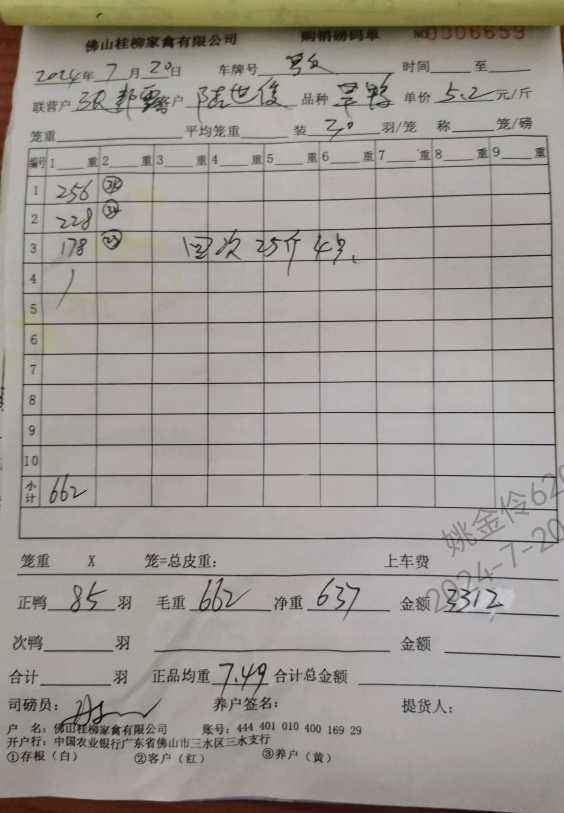 佛山桂柳家禽有限公司 购销磅码单 NO 0006659
2024年7月20日 车牌号 时间 至
联营户 客户 陆世俊 品种 单价 5.2 元/斤
笼重 平均笼重 装 30 羽/笼 称 笼/磅
编号 1 重 2 重 3 重 4 重 5 重 6 重 7 重 8 重 9 重
1 256
2 228
3 178 回次 25斤 4只
4
5
6
7
8
9
10
小计 662
笼重 X 笼=总皮重: 上车费
正鸭 85 羽 毛重 662 净重 637 金额 3312
次鸭 羽 金额
合计 羽 正品均重 7.49 合计总金额
司磅员: 养户签名: 提货人:
户 名: 佛山桂柳家禽有限公司 账号: 444 401 010 400 169 29
开户行: 中国农业银行广东省佛山市三水区三水支行
①存根(白) ②客户(红) ③养户(黄)
姚金伶629
2024-7-20